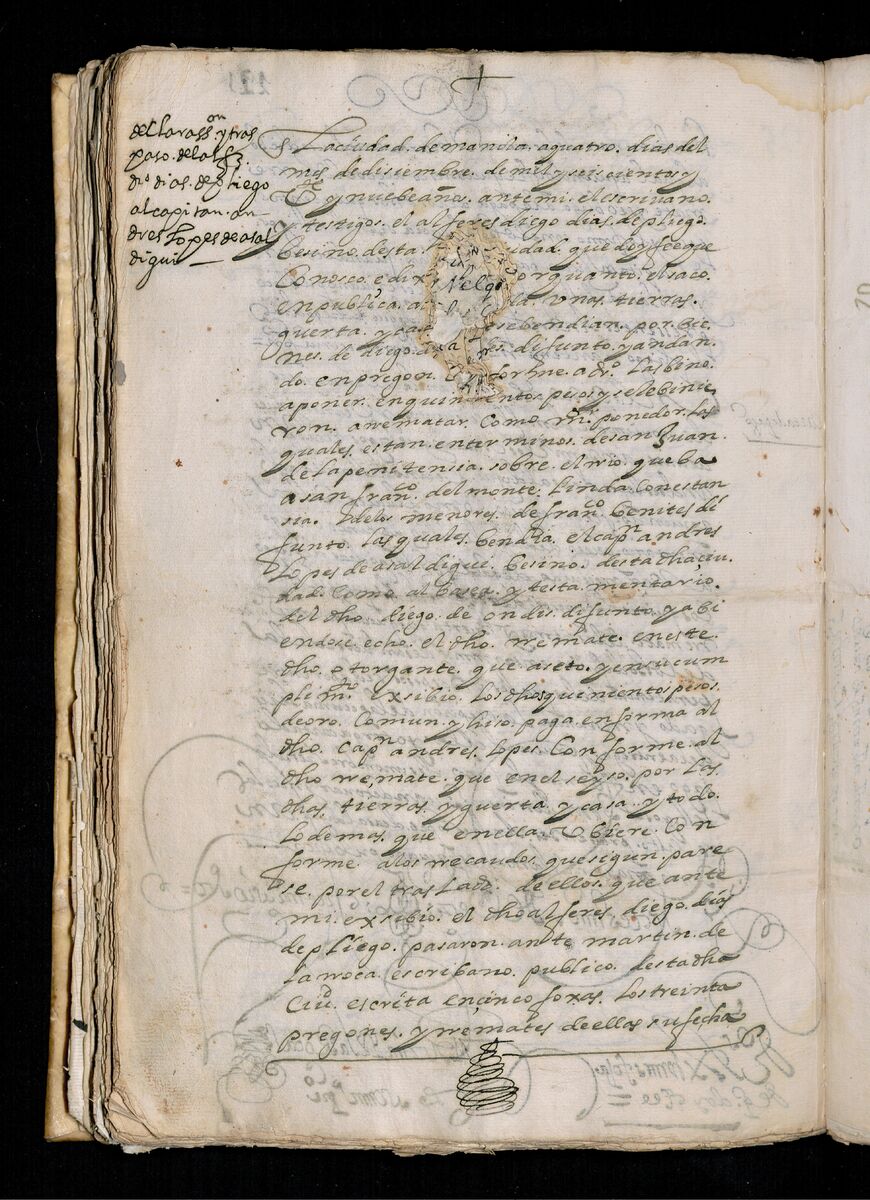 declarass.on y tras
paso. del alf.z
di.o dias. de pliego
al capitan. an
dres Lopes de asal
digui
La ciudad. de manila. a quatro. dias del
mes. de disiembre. de mil y seis cientos y
y nuebe años. ante mi. el escrivano.
y testigos. el alferes. diego dias. de pliego.
besino. desta. ciudad. que doy fee que
Conosco. e dixo por quanto. el saco.
en publica. unas tierras.
guerta. y casa se bendian. por bie
nes. de diego. difunto. y andan
do. en pregon. las bino.
a poner. en quinientos. pesos y se le binie
ron. a rematar. Como mr. ponedor. las
quales. estan. en terminos. de san Juan.
de la penitensia. sobre. el rio. que ba
a san fran.co del monte. Linda. Con estan
sia. de los menores. de fran.co benites di
funto. las quales. bendia. el cap.n andres
Lopes de asaldigui. besino. desta dha ciu
dad. Como. albasea. y testamentario.
del dho. diego. de ondes. difunto. y abi
endose. echo. el dho. rremate. en este
dho. otorgante. que aseto. y en su cum
plim.to exsibio. Los dhos quinientos pesos.
de oro. Comun. y hiso. paga. en forma al
dho. Cap.n andres. Lopes. Conforme. al
dho rremate. que en el se yso. por las
dhas. tierras. y guerta. y casa. y todo.
Lo demas. que en ella. ubiere. Con
forme. a los rrecaudos. que segun. pare
se. por el traslado. de ellos. que ante
mi. exsibio. el dho alferes. diego. dias
de pliego. pasaron. ante martin. de
la rroca. escribano. publico. desta dha
Ciu.d escrita en cinco foxas. Los treinta
pregones. y rremates. de ellas su fecha